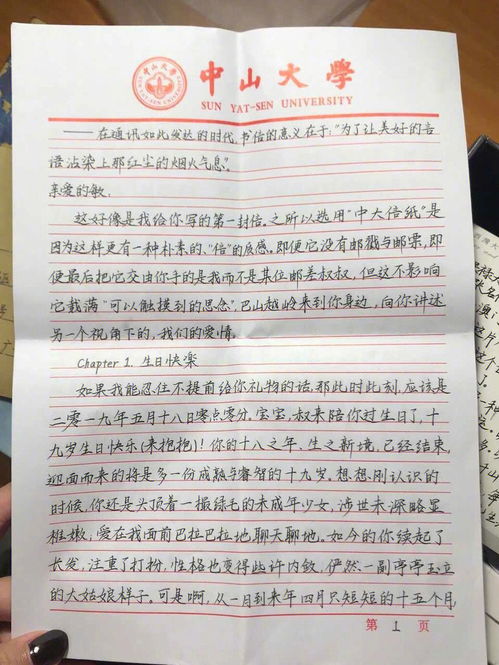 中山大學
SUN YAT-SEN UNIVERSITY
——在通讯如此发达的时代,书信的意义在于:"为了让美好的言
语沾染上那红尘的烟火气息"。
亲爱的敏,
这好像是我给你写的第一封信。之所以选用"中大信纸"是
因为这样更有一种朴素的、"信"的质感。即便它没有邮戳与邮票,即
便最后把它交由你手的是我而不是某位邮差叔叔,但这不影响
它载满"可以触摸到的思念",巴山越岭来到你身边,向你讲述
另一个视角下的,我们的爱情。
Chapter 1. 生日快楽
如果我能忍住不提前给你礼物的话,那此时此刻,应该是
二零一九年五月十八日零点零分。宝宝,叔来陪你过生日了,十
九岁生日快乐(来抱抱)!你的十八之年、生之新境,已经结束,
迎面而来的将是多一份成熟与睿智的十九岁。想想,刚认识的
时候,你还是头顶着一撮绿毛的未成年少女,涉世未深略显
稚嫩,爱在我面前巴拉巴拉地聊天聊地。如今的你续起了
长发,注重了打扮,性格也变得些许内敛,俨然一副亭亭玉立
的大姑娘样子。可是啊,从一月到来年四月只短短的十五个月,
第 1 页